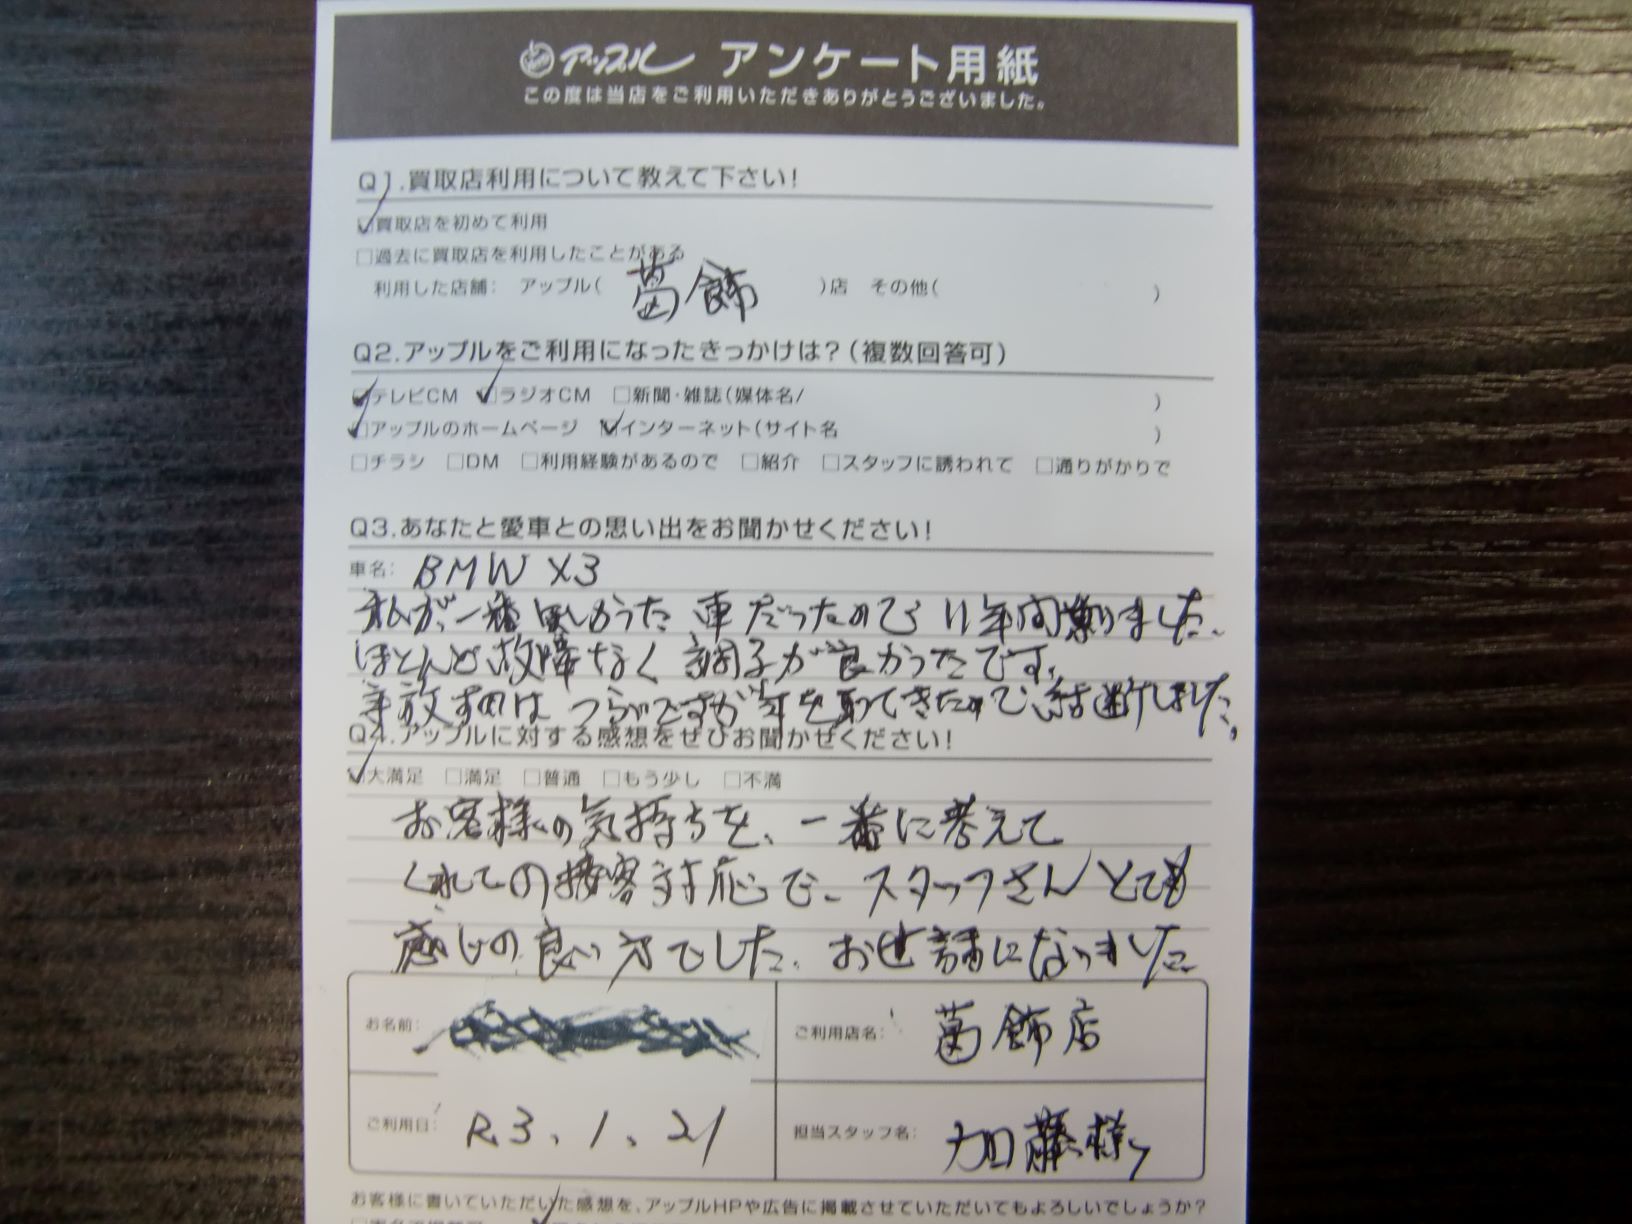 アップル アンケート用紙
この度は当店をご利用いただきありがとうございました。
Q1.買取店利用について教えて下さい!
☑買取店を初めて利用
□過去に買取店を利用したことがある
利用した店舗: アップル( 葛飾 )店 その他( )
Q2.アップルをご利用になったきっかけは?(複数回答可)
☑テレビCM ☑ラジオCM □新聞・雑誌(媒体名/ )
☑アップルのホームページ ☑インターネット(サイト名 )
□チラシ □DM □利用経験があるので □紹介 □スタッフに誘われて □通りがかりで
Q3.あなたと愛車との思い出をお聞かせください!
車名: BMW X3
私が一番欲しかった車だったので11年間乗りました。
ほとんど故障なく調子が良かったです。
手放すのはつらいですが年を取ってきたので決断しました。
Q4.アップルに対する感想をぜひお聞かせください!
☑大満足 □満足 □普通 □もう少し □不満
お客様の気持ちを、一番に考えて
くれての接客対応で、スタッフさんとても
感じの良い方でした。お世話になりました。
お名前: ご利用店名: 葛飾店
ご利用日: R3.1.21 担当スタッフ名: 加藤様
お客様に書いていただいた感想を、アップルHPや広告に掲載させていただいてもよろしいでしょうか?